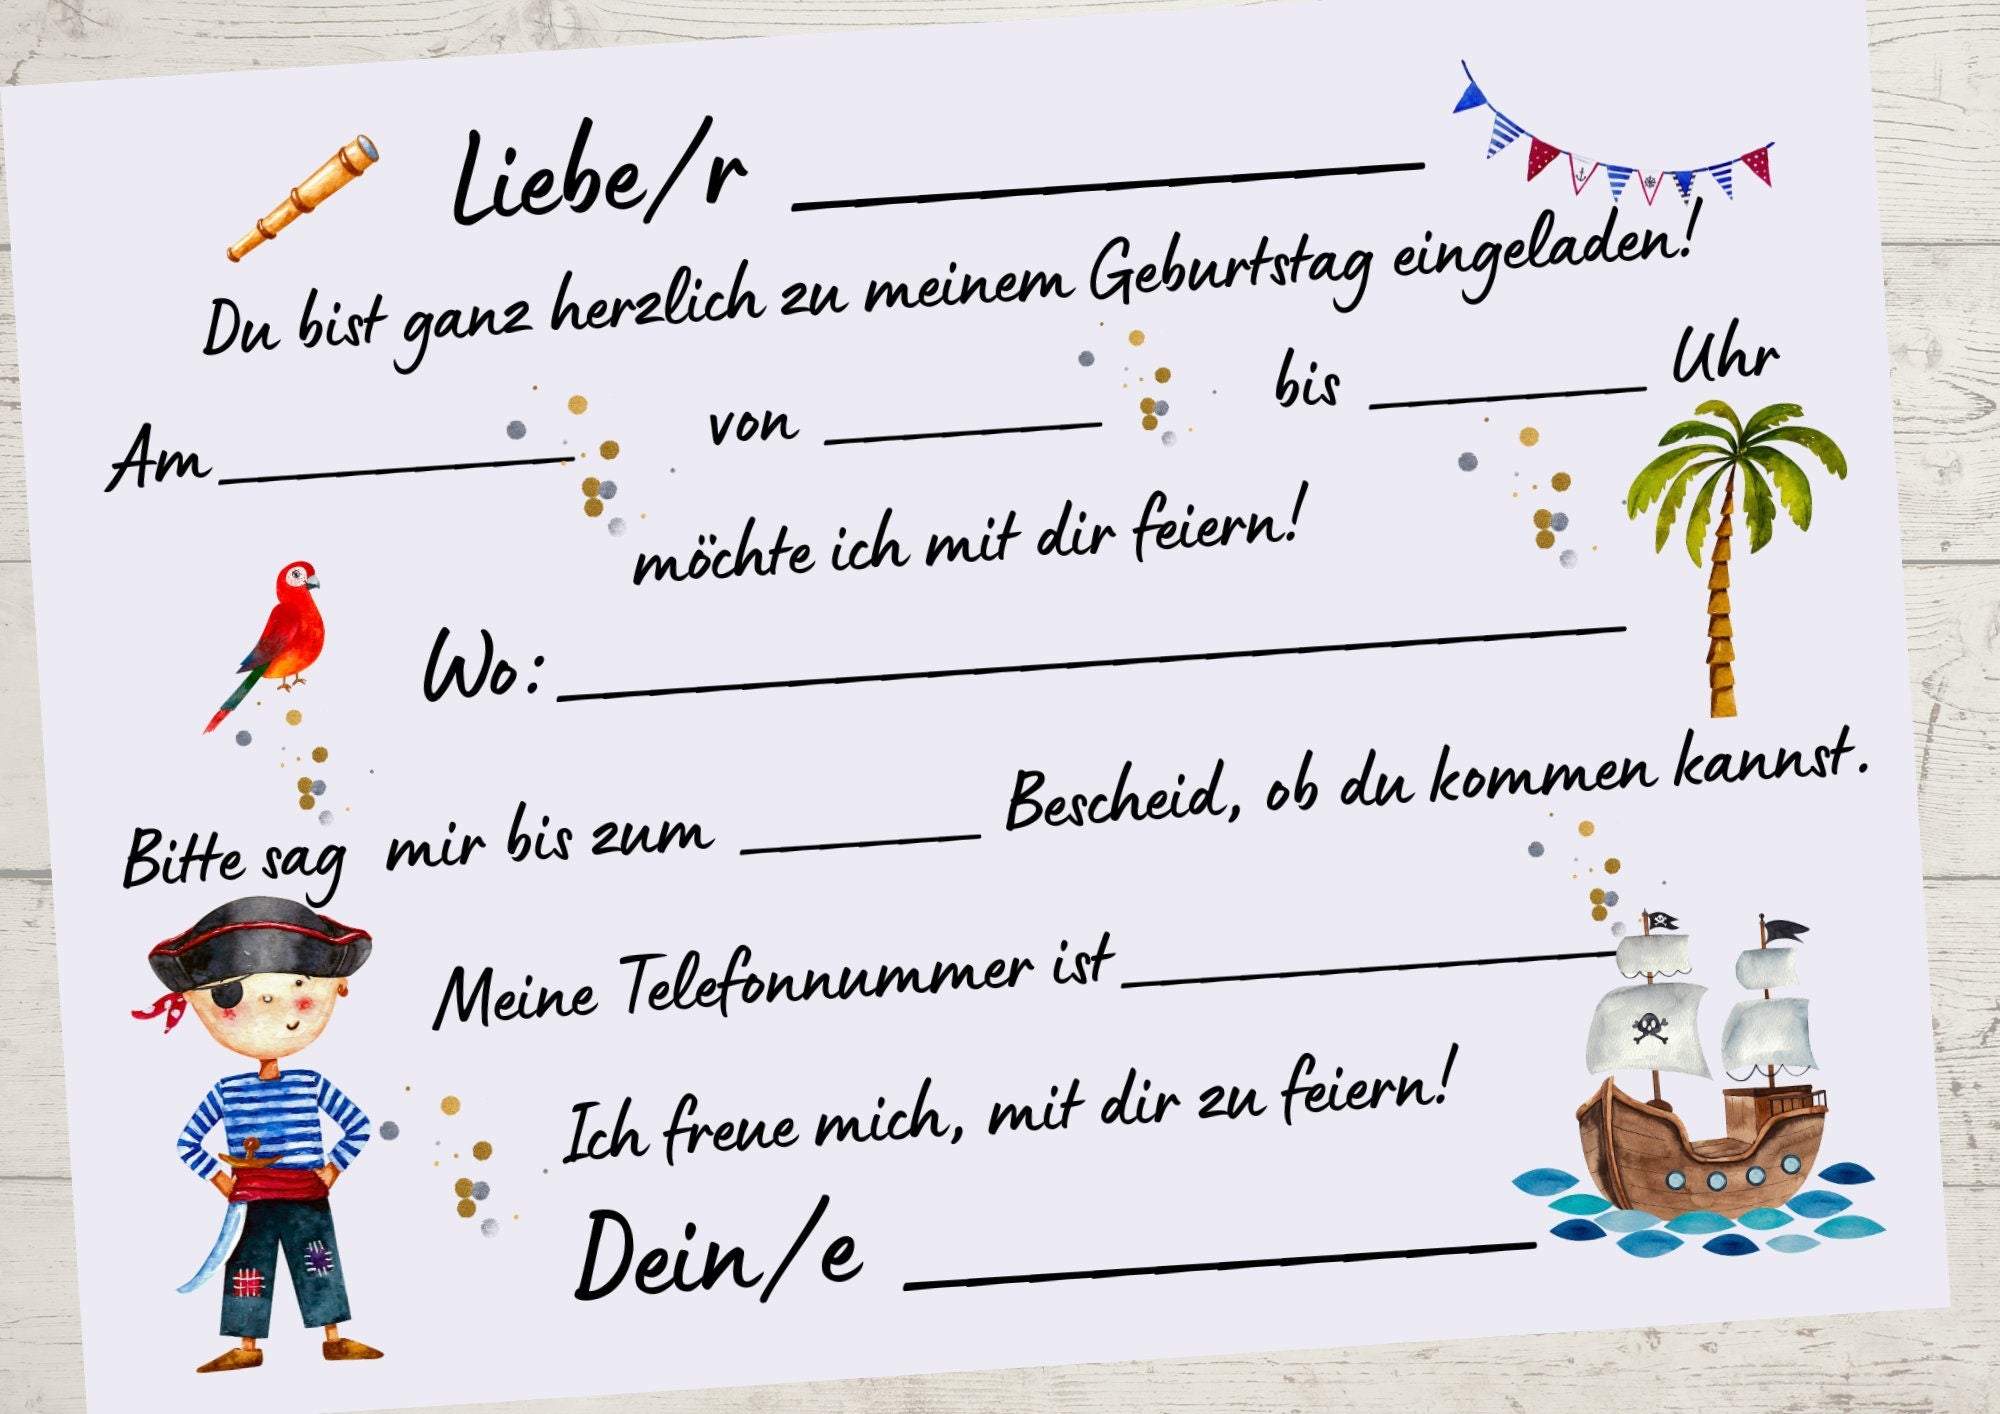 Liebe/r
Du bist ganz herzlich zu meinem Geburtstag eingeladen!
Am von bis Uhr
möchte ich mit dir feiern!
Wo:
Bitte sag mir bis zum Bescheid, ob du kommen kannst.
Meine Telefonnummer ist
Ich freue mich, mit dir zu feiern!
Dein/e